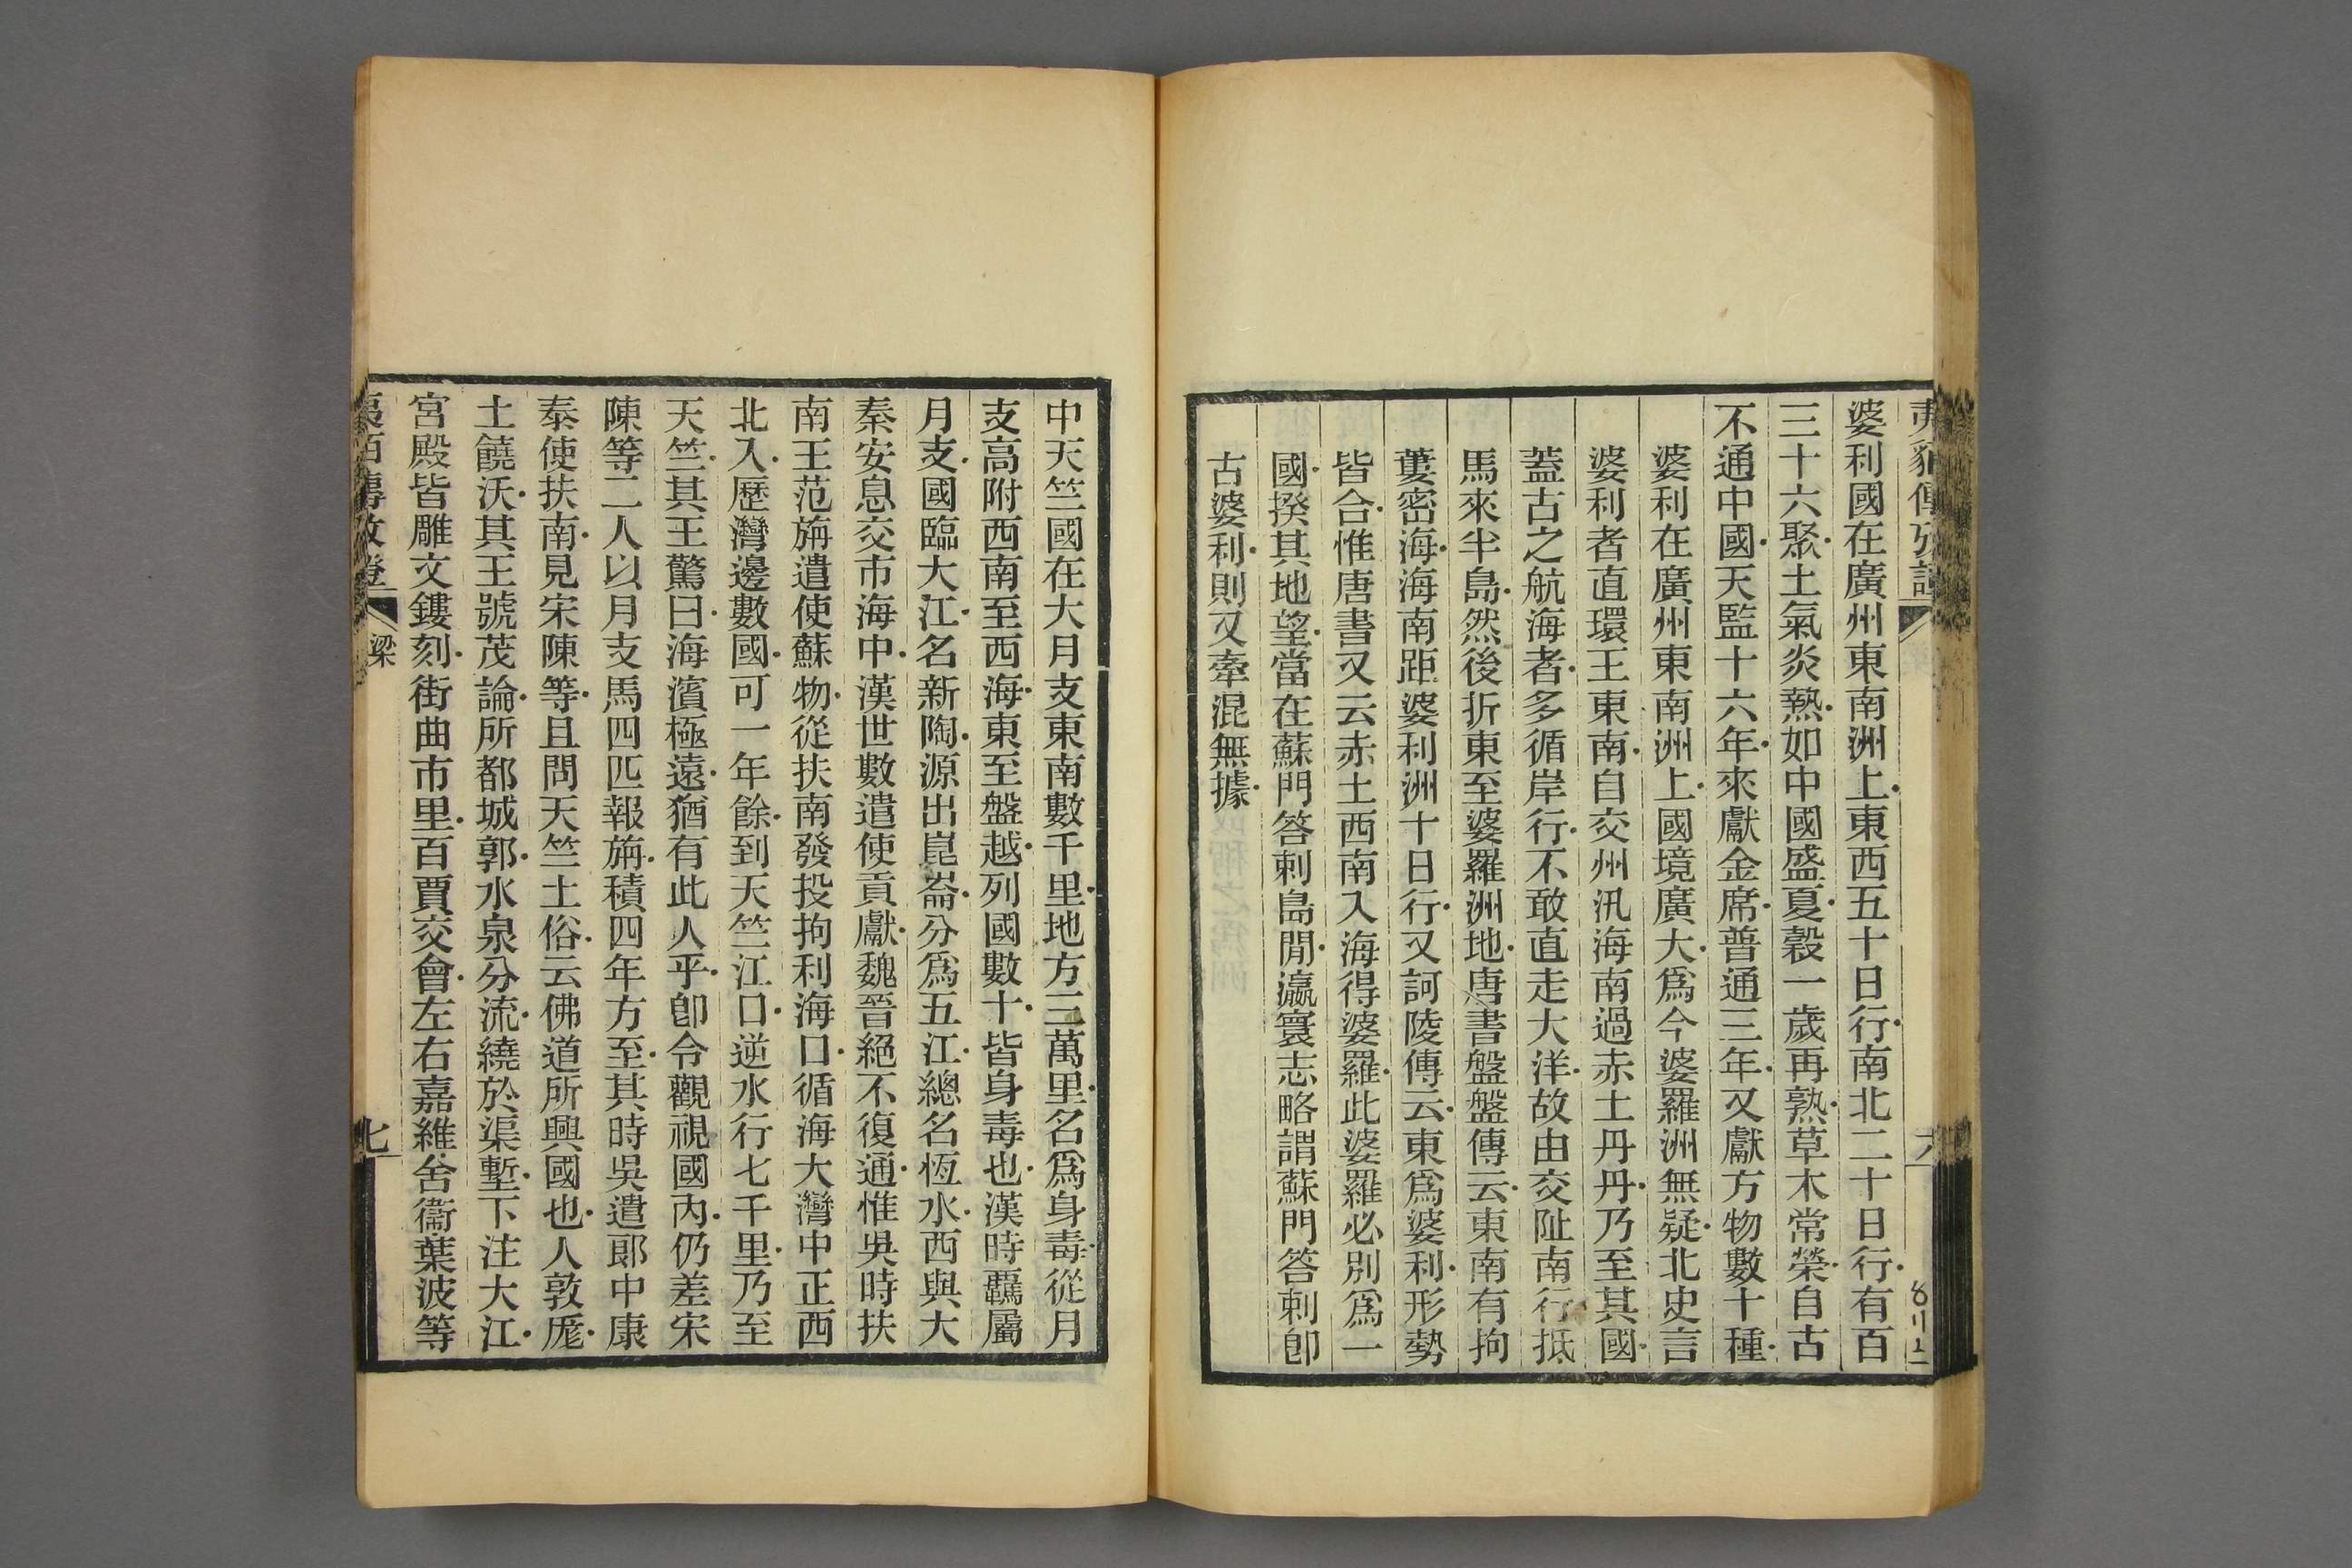 婆利國在廣州東南洲上東西五十日行南北二十日行有百
三十六聚土氣炎熱如中國盛夏穀一歲再熟草木常榮自古
不通中國天監十六年來獻金席普通三年又獻方物數十種
婆利在廣州東南洲上國境廣大爲今婆羅洲無疑北史言
婆利者直環王東南自交州汎海南過赤土丹丹乃至其國
蓋古之航海者多循岸行不敢直走大洋故由交阯南行抵
馬來半島然後折東至婆羅洲地唐書盤盤傳云東南有拘
蔞密海海南距婆利洲十日行又訶陵傳云東爲婆利形勢
皆合惟唐書又云赤土西南入海得婆羅此婆羅必別爲一
國揆其地望當在蘇門答剌島閒瀛寰志略謂蘇門答剌卽
古婆利則又牽混無據
六
8126
中天竺國在大月支東南數千里地方三萬里名爲身毒從月
支高附西南至西海東至盤越列國數十皆身毒也漢時羈屬
月支國臨大江名新陶源出崑崙分爲五江總名恆水西與大
秦安息交市海中漢世數遣使貢獻魏晉絕不復通惟吳時扶
南王范旃遣使蘇物從扶南發投拘利海口循海大灣中正西
北入歷灣邊數國可一年餘到天竺江口逆水行七千里乃至
天竺其王驚曰海濱極遠猶有此人乎卽令觀視國內仍差宋
陳等二人以月支馬四匹報旃積四年方至其時吳遣郎中康
泰使扶南見宋陳等且問天竺土俗云佛道所興國也人敦厖
土饒沃其王號茂論所都城郭水泉分流繞於渠塹下注大江
宮殿皆雕文鏤刻街曲市里百賈交會左右嘉維舍衞葉波等
梁
七